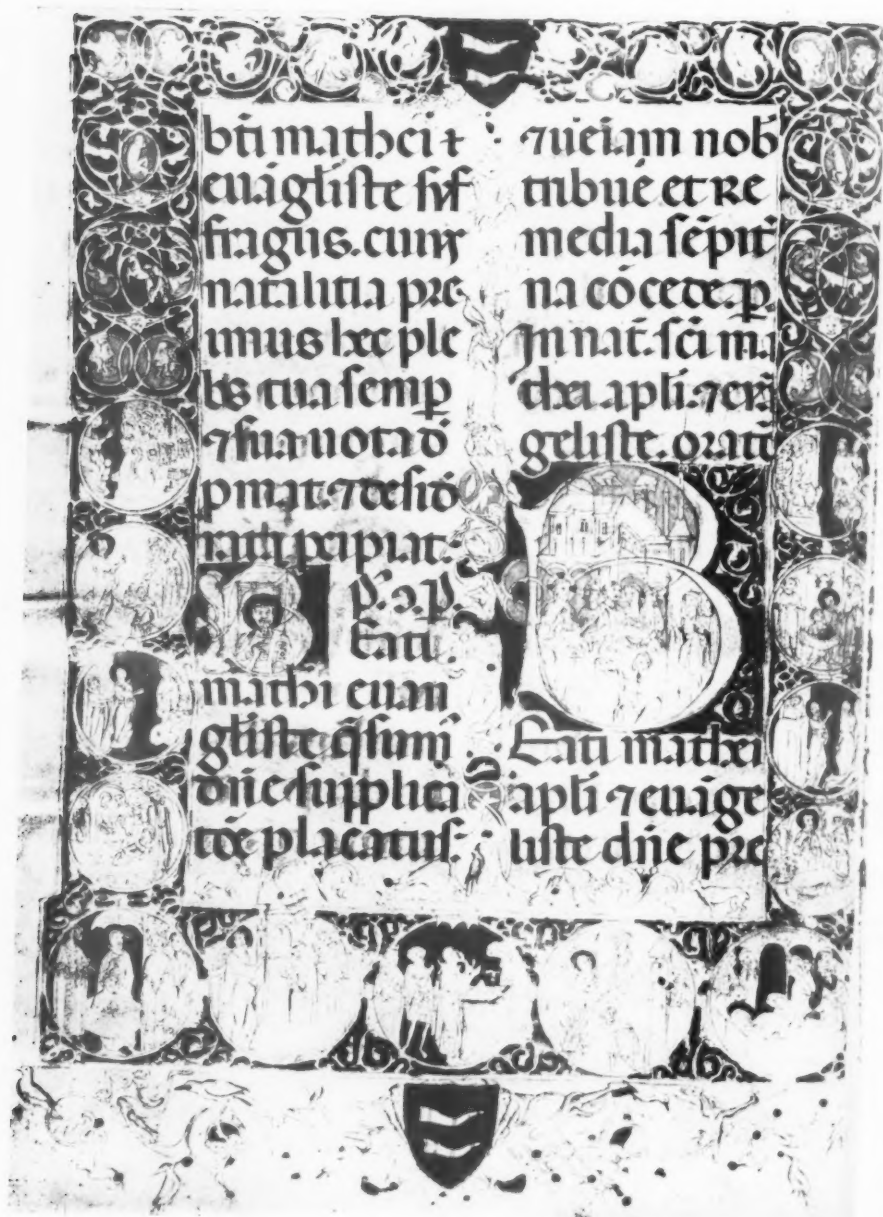 bti mathei ⁊
euāgliste suf
fragiis. cuius
natalitia pre
imus hec ple
bs tua semp̄
⁊ sua uota d̄
p̄mat. ⁊ desid̄
p̄. ꝯ. p̄.
Eati
mathi euan
gliste q̄sum̄
dn̄e supplica
placatus.
⁊ueiam nob̄
tribue et re
media sēpit̄
na cōcede. p̄
In nat. sc̄i ma
thei apl̄i. ⁊ eu̅ā
geliste. oratō
Beati mathei
apl̄i ⁊ euāge
liste dn̄e pre